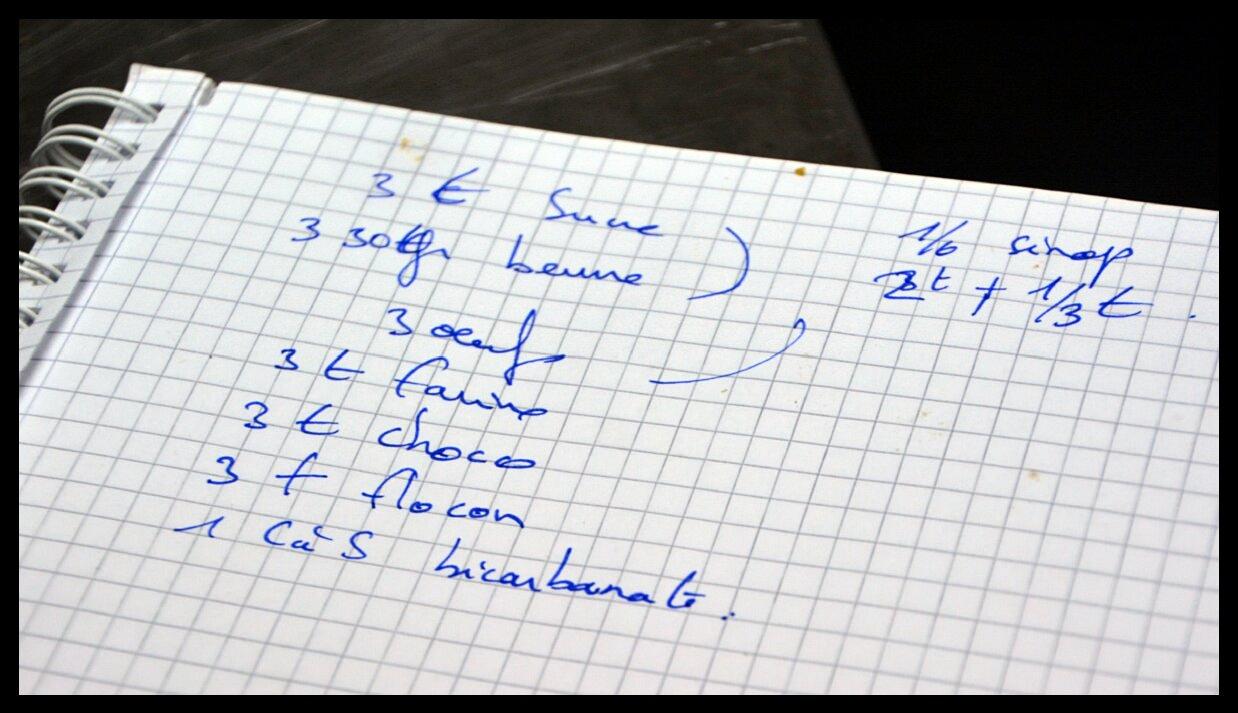 3 t Sucre
3 30 gr beurre
3 oeufs
3 t farine
3 t choco
3 t flocon
1 CàS bicarbonate.
1/6 sirop
2t + 1/3 t.